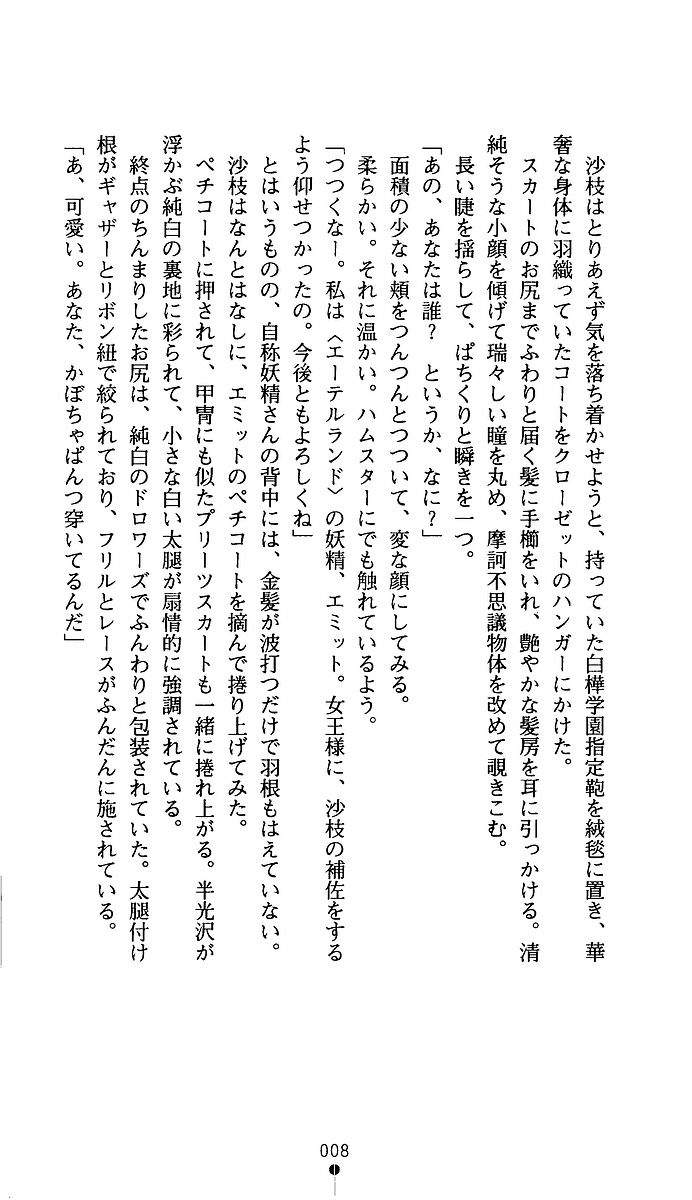 沙枝はとりあえず気を落ち着かせようと、持っていた白樺学園指定鞄を絨毯に置き、華
奢な身体に羽織っていたコートをクローゼットのハンガーにかけた。
　スカートのお尻までふわりと届く髪に手櫛をいれ、艶やかな髪房を耳に引っかける。清
純そうな小顔を傾げて瑞々しい瞳を丸め、摩訶不思議物体を改めて覗きこむ。
　長い睫を揺らして、ぱちくりと瞬きを一つ。
「あの、あなたは誰？　というか、なに？」
　面積の少ない頬をつんつんとつついて、変な顔にしてみる。
　柔らかい。それに温かい。ハムスターにでも触れているよう。
「つつくなー。私は〈エーテルランド〉の妖精、エミット。女王様に、沙枝の補佐をする
よう仰せつかったの。今後ともよろしくね」
　とはいうものの、自称妖精さんの背中には、金髪が波打つだけで羽根もはえていない。
　沙枝はなんとはなしに、エミットのペチコートを摘んで捲り上げてみた。
　ペチコートに押されて、甲冑にも似たプリーツスカートも一緒に捲れ上がる。半光沢が
浮かぶ純白の裏地に彩られて、小さな白い太腿が扇情的に強調されている。
　終点のちんまりしたお尻は、純白のドロワーズでふんわりと包装されていた。太腿付け
根がギャザーとリボン紐で絞られており、フリルとレースがふんだんに施されている。
「あ、可愛い。あなた、かぼちゃぱんつ穿いてるんだ」
008